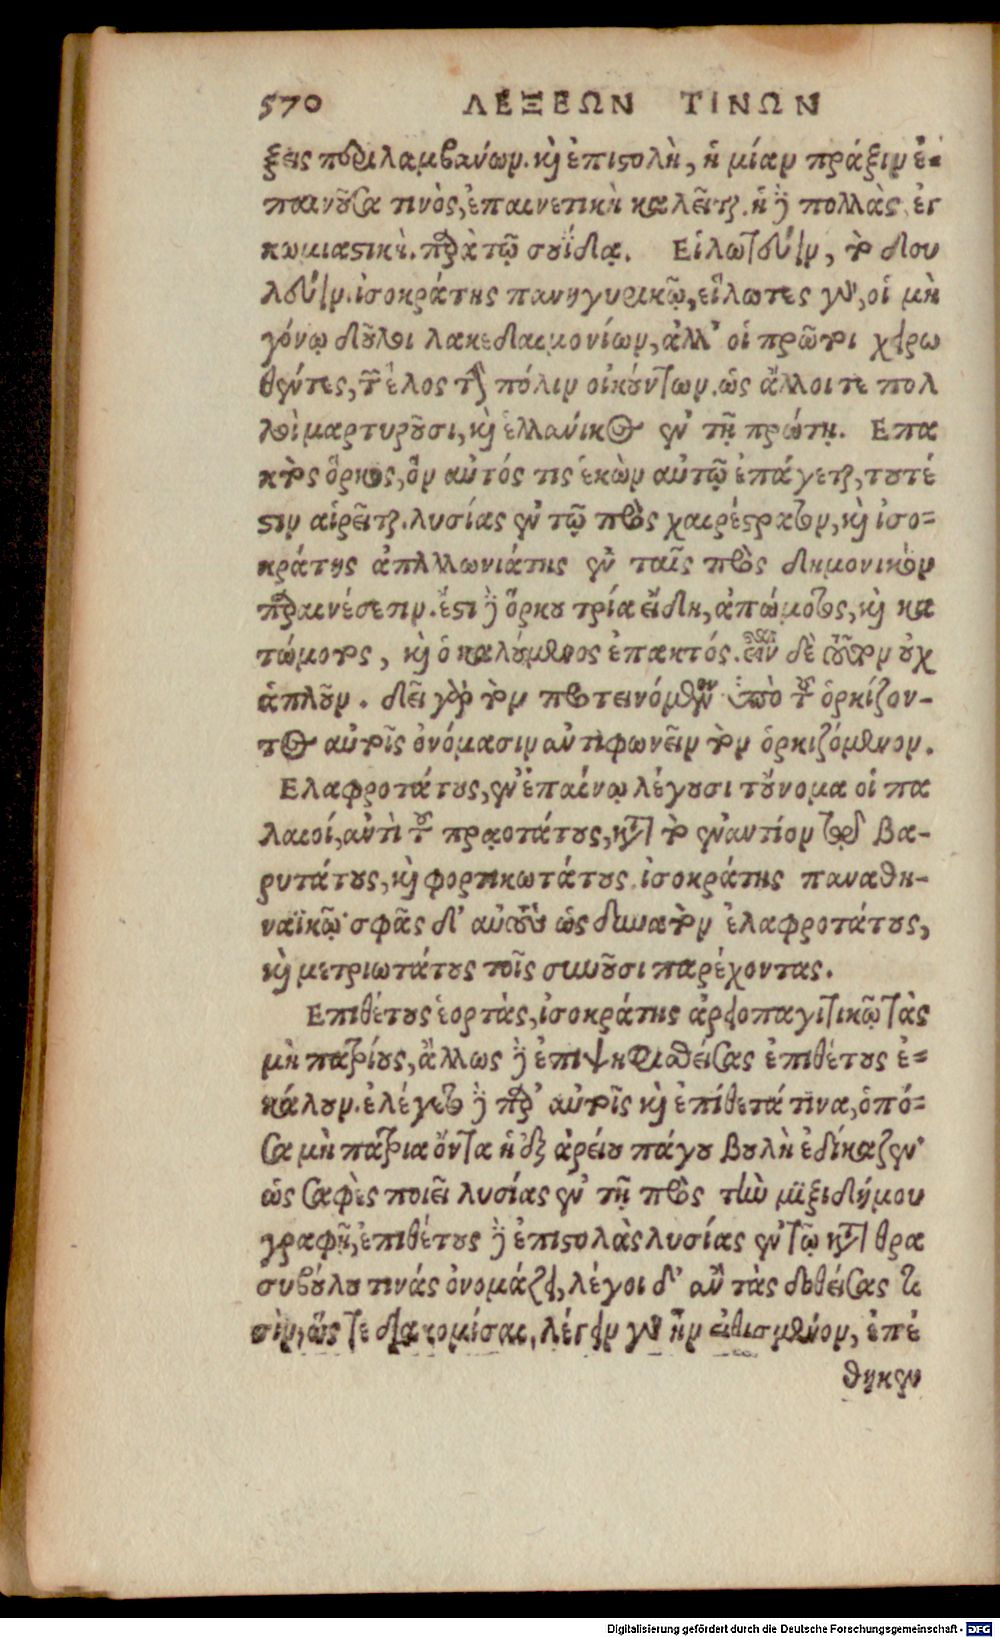 570 ΛΕΞΕΩΝ ΤΙΝΩΝ
ξεις περιλαμβανων. καὶ ἐπιστολὴ, ἡ μίαν πράξιν ἐ-
παινοῦσα τινὸς, ἐπαινετικὴ καλεῖται. ἡ δὲ πολλὰς, ἐγ
κωμιαστικὴ. παρὰ τῷ σουΐδᾳ. Εἱλωτεύειν, τὸ δου
λεύειν. ἰσοκράτης πανηγυρικῷ, εἵλωτες γὰρ, οἱ μὴ
γόνῳ δοῦλοι λακεδαιμονίων, ἀλλ' οἱ πρῶτοι χειρω
θέντες, τῶν ἕλος τὴν πόλιν οἰκούντων. ὡς ἄλλοι τε πολ
λοὶ μαρτυροῦσι, καὶ ἑλλάνικος ἐν τῇ πρώτῃ. Επα
κτὸς ὅρκος, ὃν αὐτός τις ἑκὼν αὑτῷ ἐπάγεται, τουτέ
στιν αἱρεῖται. λυσίας ἐν τῷ πρὸς χαιρέστρατον, καὶ ἰσο-
κράτης ἀπολλωνιάτης ἐν ταῖς πρὸς δημονικὸν
παραινέσεσιν. ἔστι δὲ ὅρκου τρία εἴδη, ἀπώμοτος, καὶ κα
τώμοτος, καὶ ὁ καλούμενος ἐπακτός. εἶναι δὲ τοῦτον οὐχ
ἁπλοῦν. δεῖ γὰρ τὸν προτεινόμενον ὑπὸ τοῦ ὁρκίζον-
τος αὐτοῖς ὀνόμασιν ἀντιφωνεῖν τὸν ὁρκιζόμενον.
Ελαφροτάτους, ἐν ἐπαίνῳ λέγουσι τοὔνομα οἱ πα
λαιοί, ἀντὶ τοῦ πραοτάτους, κατὰ τὸ ἐναντίον τοῦ βα-
ρυτάτους, καὶ φορτικωτάτους. ἰσοκράτης παναθη-
ναϊκῷ· σφᾶς δ' αὐτοὺς ὡς δυνατὸν ἐλαφροτάτους,
καὶ μετριωτάτους τοῖς συνοῦσι παρέχοντας.
Επιθέτους ἑορτὰς, ἰσοκράτης ἀρειοπαγιτικῷ τὰς
μὴ πατρίους, ἄλλως δὲ ἐπιψηφισθείσας ἐπιθέτους ἐ-
κάλουν. ἐλέγετο δὲ παρ' αὐτοῖς καὶ ἐπίθετά τινα, ὁπό-
σα μὴ πάτρια ὄντα ἡ ἐξ ἀρείου πάγου βουλὴ ἐδίκαζεν·
ὡς σαφὲς ποιεῖ λυσίας ἐν τῇ πρὸς τὴν μιξιδήμου
γραφῇ, ἐπιθέτους δὲ ἐπιστολὰς λυσίας ἐν τῷ κατὰ θρα
συβούλου τινάς ὀνομάζει, λέγοι δ' ἂν τὰς δοθείσας τι
σὶν, ὥς τε διακομίσαι, λέγειν γὰρ ἦν εἰθισμένον, ἐπέ
θηκεν